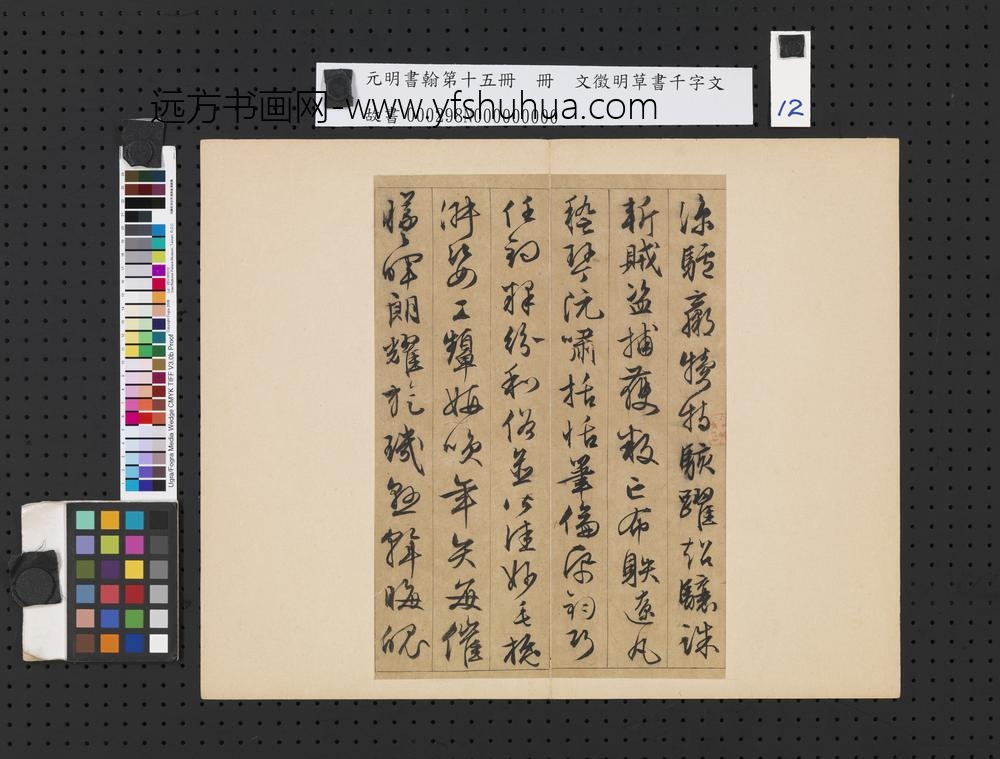 元明書翰第十五冊　冊　文徵明草書千字文
故書 000298N000000000
远方书画网-www.yfshuhua.com
12
涼驢驘犢特駭躍超驤誅
斬賊盜捕獲叛亡布射遼丸
嵇琴阮嘯括恬筆倫紙鈞巧
任釣釋紛利俗並皆佳妙毛施
淑姿工顰妍咲年矢每催
曦暉朗耀旋璣懸斡晦魄
Ugra/Fogra Media Wedge CMYK TIFF V3.0b Proof